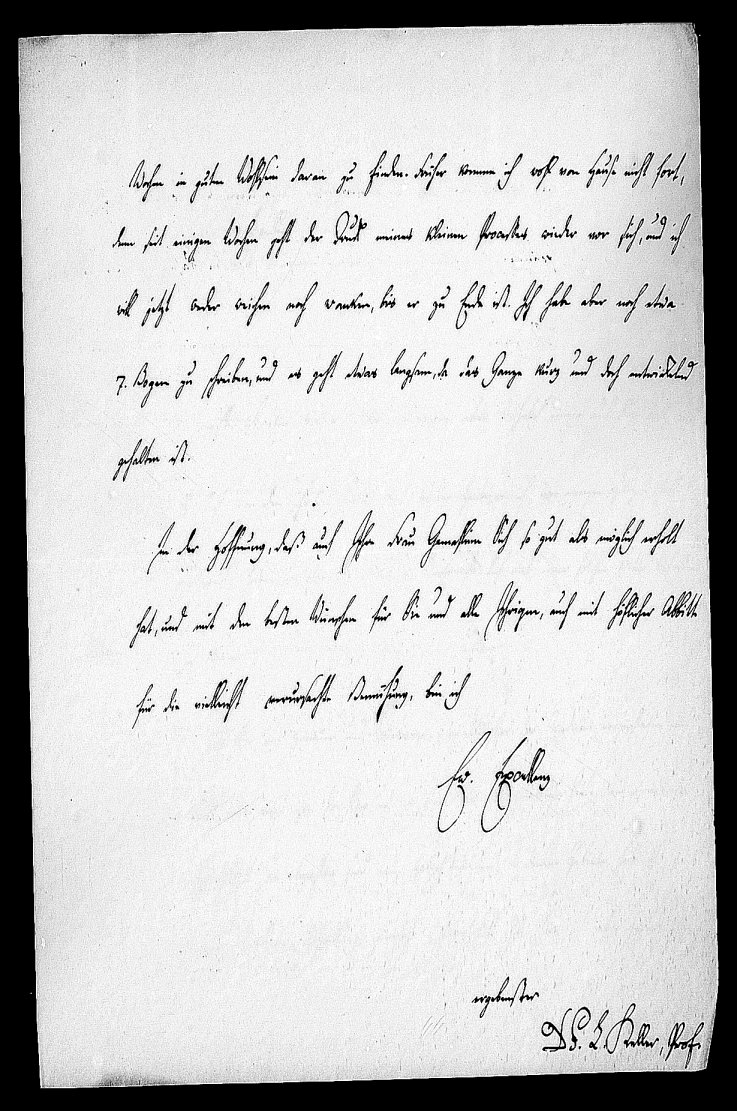 Wochen in gutem Wohlsein daran zu finden. Früher komme ich wohl von Hause nicht fort,
denn seit einigen Wochen geht der Druck meines kleinen Processes wieder vor sich, und ich
will jetzt weder weichen noch wanken, bis er zu Ende ist. Ich habe aber noch etwa
7. Bogen zu schreiben, und es geht etwas langsam, da das Ganze kurz und doch entwickelnd
gehalten ist.
In der Hoffnung, daß auch Ihre Frau Gemahlinn Sich so gut als möglich erholt
hat, und mit den besten Wünschen für Sie und alle Ihrigen, auch mit höflicher Abbitte
für die vielleicht verursachte Bemühung, bin ich
Ew. Excellenz
ergebenster
F. L. Keller, Prof.